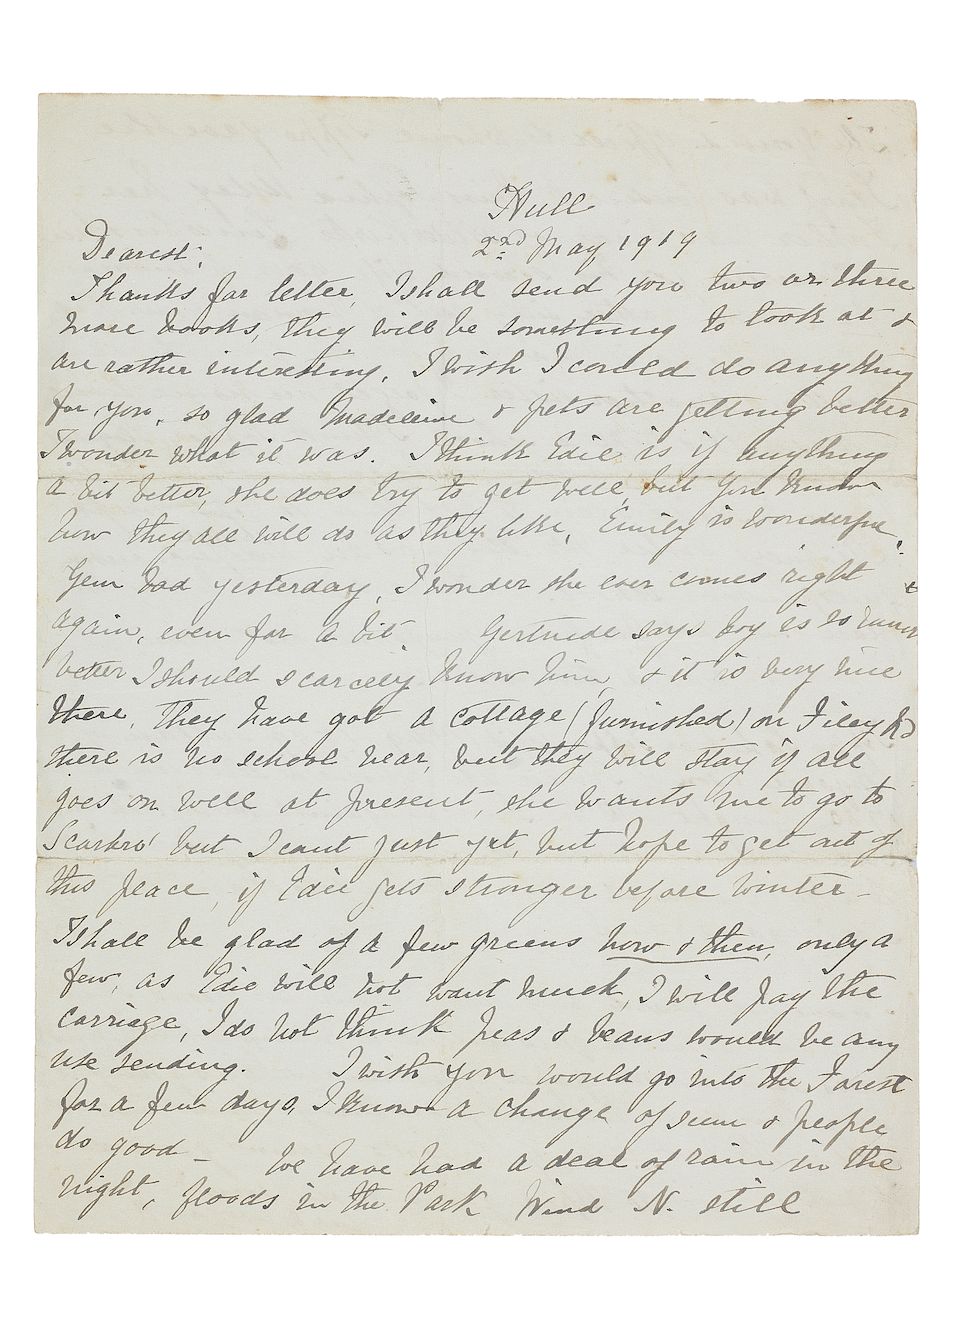 Hull
2nd May 1919
Dearest.
Thanks for letter, I shall send you two or three
more books, they will be something to look at &
are rather interesting, I wish I could do anything
for you, so glad Madeleine & pets are getting better
I wonder what it was. I think Edie is if anything
a bit better, she does try to get well, but you know
how they all will do as they like, Emily is wonderful,
Gem bad yesterday, I wonder she ever comes right
again, even for a bit Gertrude says boy is so much
better I should scarcely know him, & it is very nice
there, they have got a cottage (furnished) on Filey Rd
there is no school near, but they will stay if all
goes on well at present, she wants me to go to
Scarbro' but I cant just yet, but hope to get out of
this place, if Edie gets stronger before winter -
I shall be glad of a few greens now & then, only a
few, as Edie will not want much, I will pay the
carriage, I do not think peas & beans would be any
use sending. I wish you would go into the Forest
for a few days, I know a change of scene & people
do good - We have had a deal of rain in the
night, floods in the Park Wind N. still